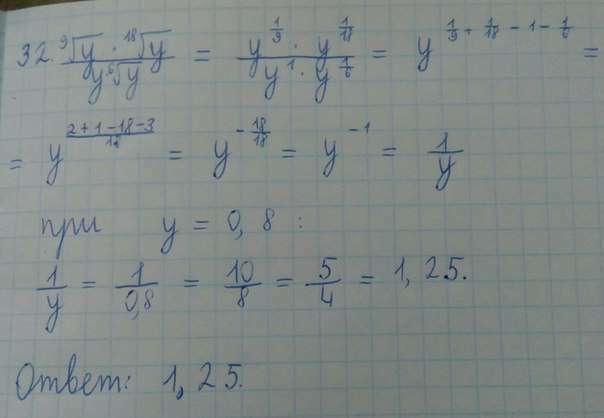 32. ⁹√y · ¹⁸√y / y ⁶√y = y^(1/9) · y^(1/18) / y^1 · y^(1/6) = y^(1/9 + 1/18 - 1 - 1/6) =
= y^((2+1-18-3)/18) = y^(-18/18) = y^(-1) = 1/y
при y = 0,8 :
1/y = 1/0,8 = 10/8 = 5/4 = 1,25.
Ответ: 1,25.